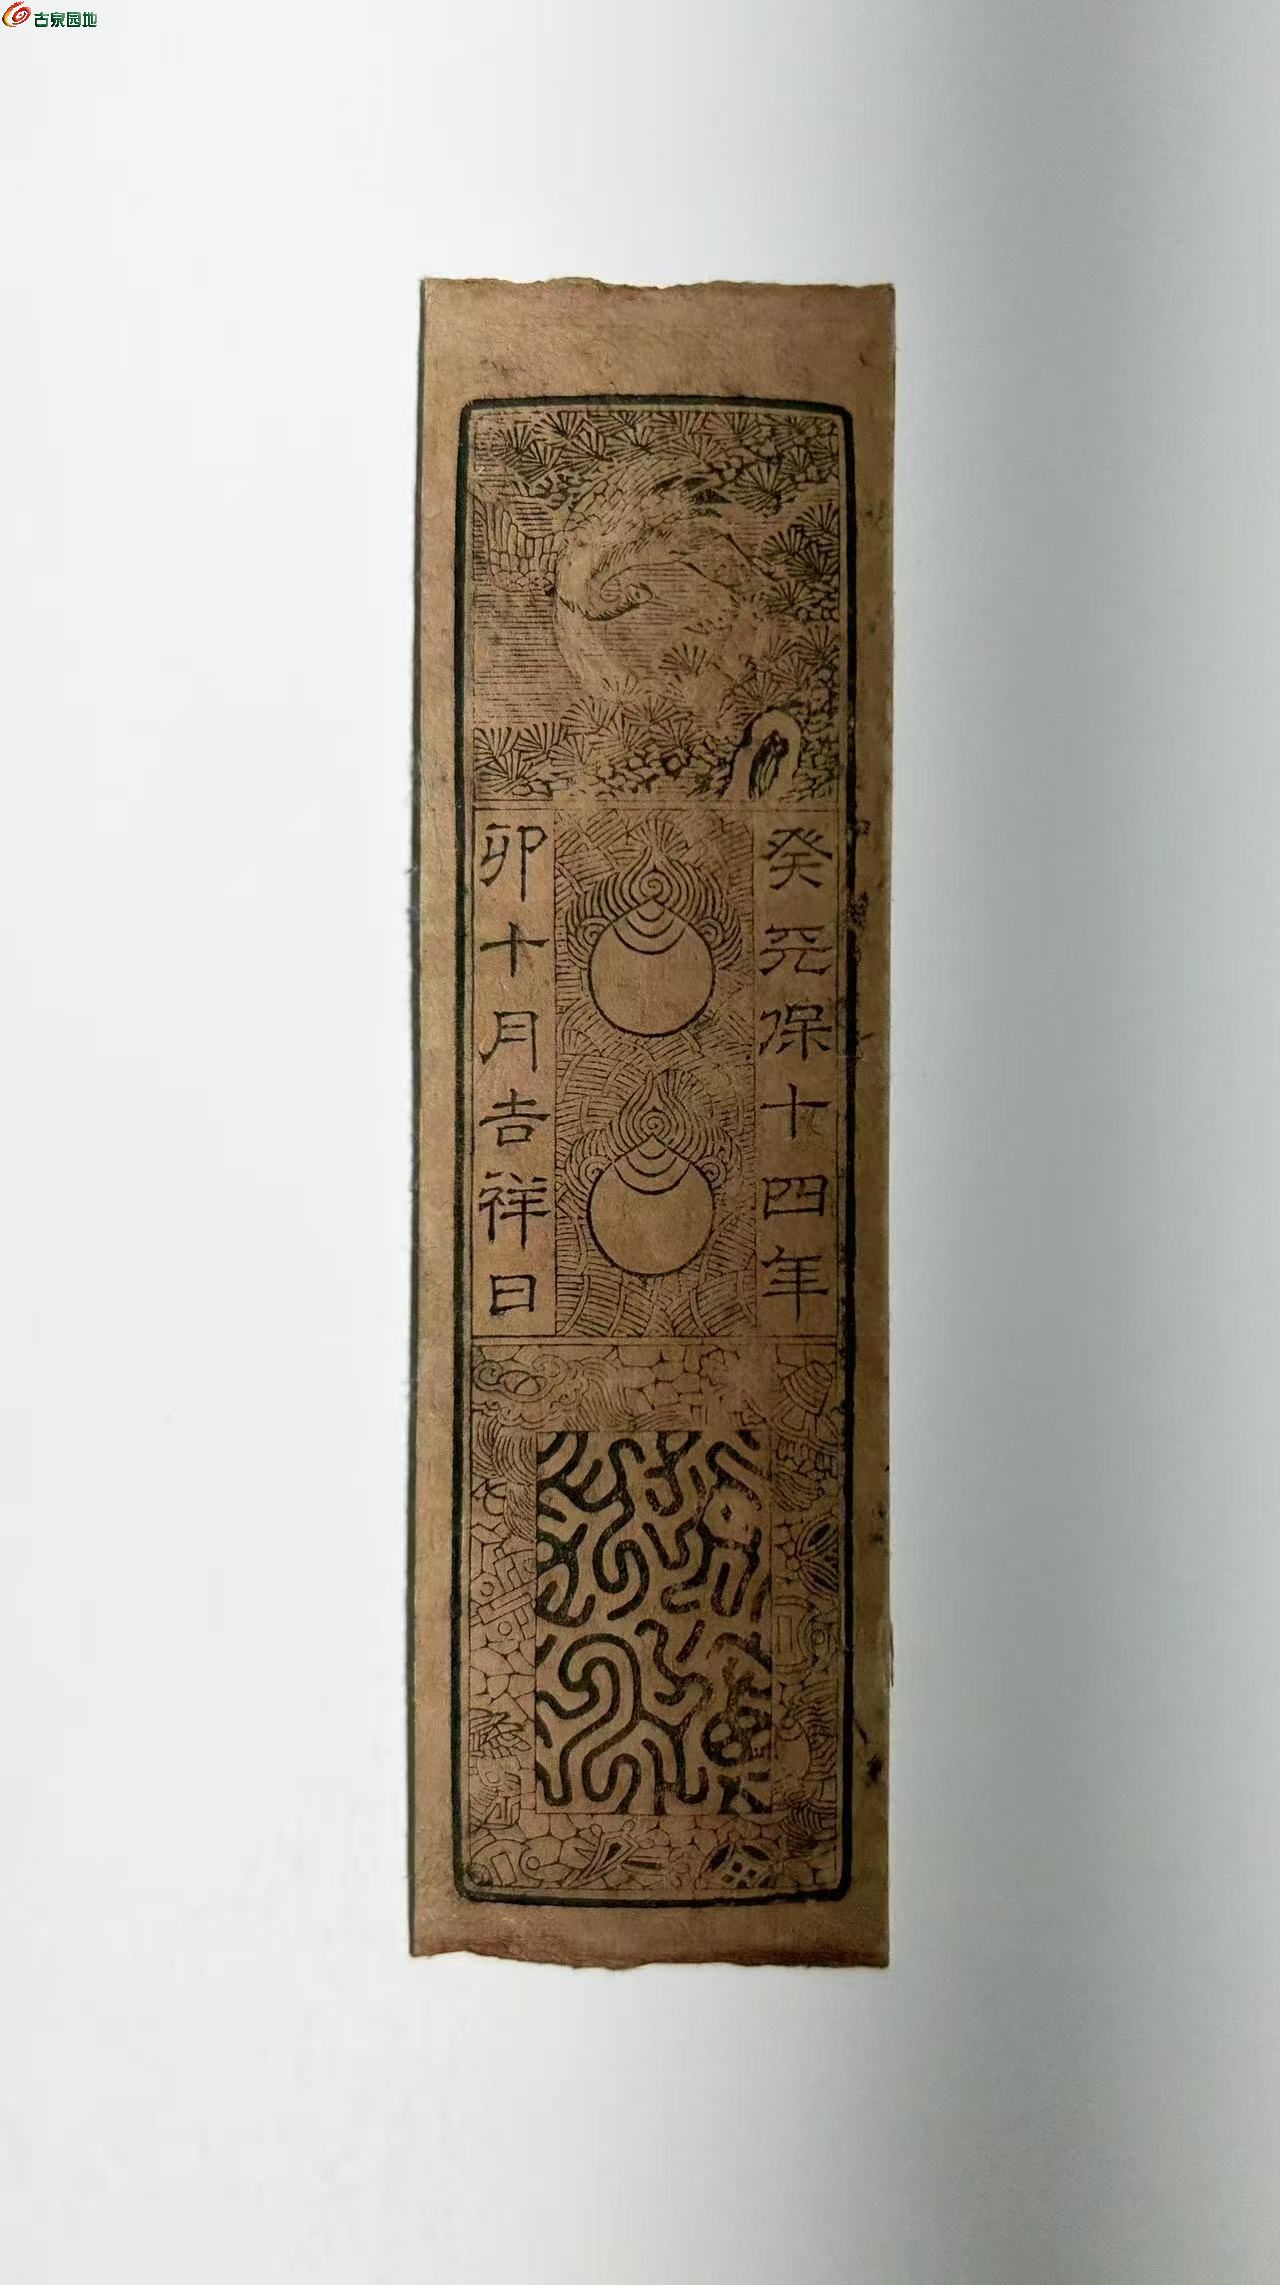 古泉园地
癸天保十四年
卯十月吉祥日